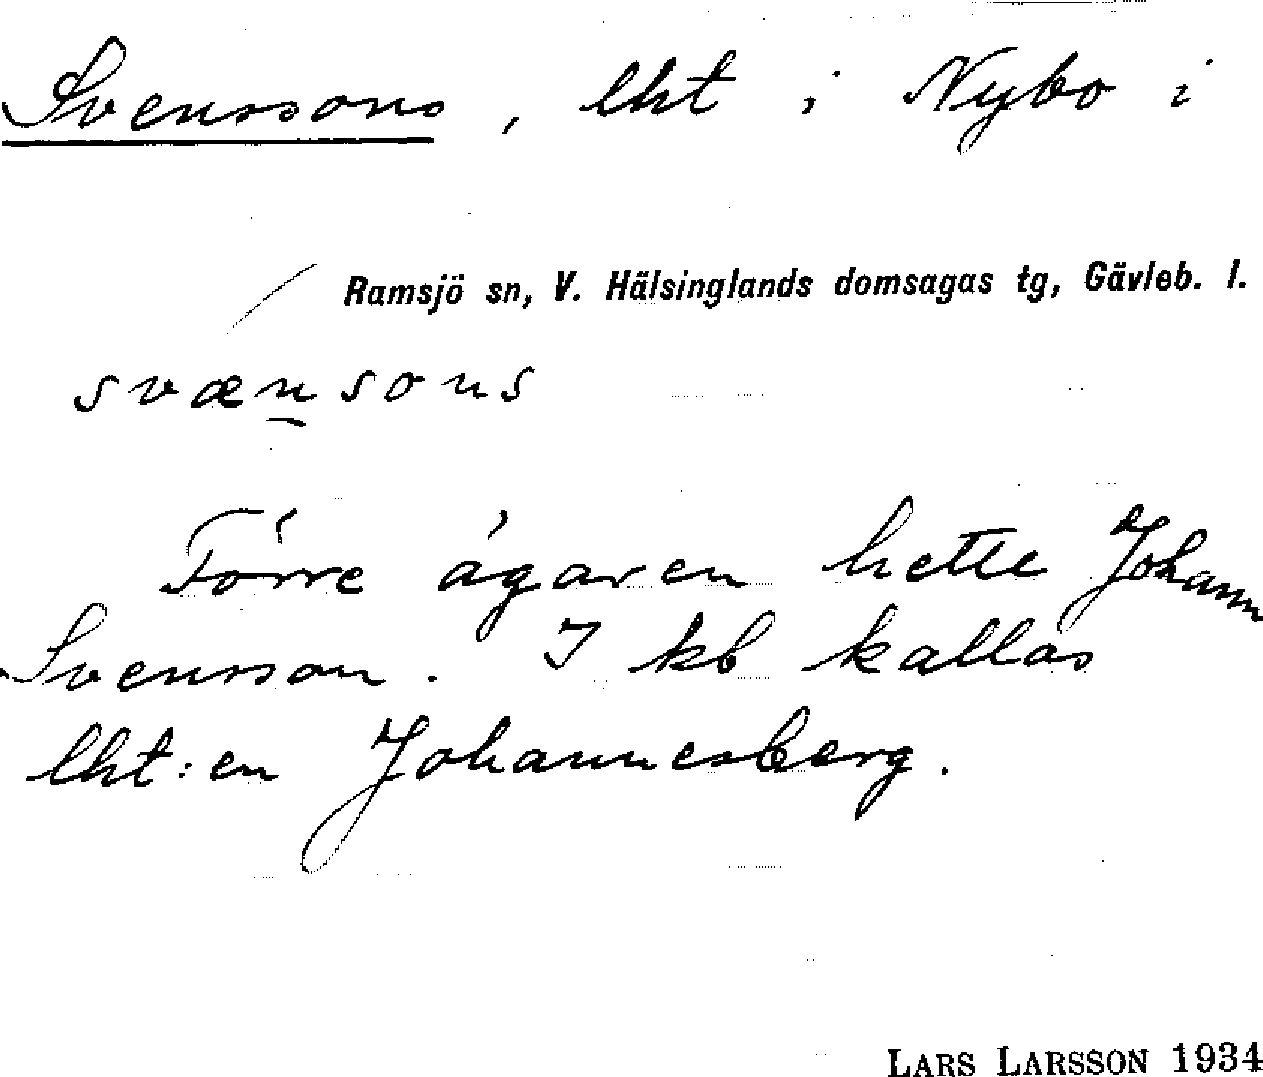 Svenssons, lht i Nybo i
Ramsjö sn, V. Hälsinglands domsagas tg, Gävleb. l.
svænsons
Förre ägaren hette Johann
Svensson. I kb kallas
lht:en Johannesberg.
LARS LARSSON 1934